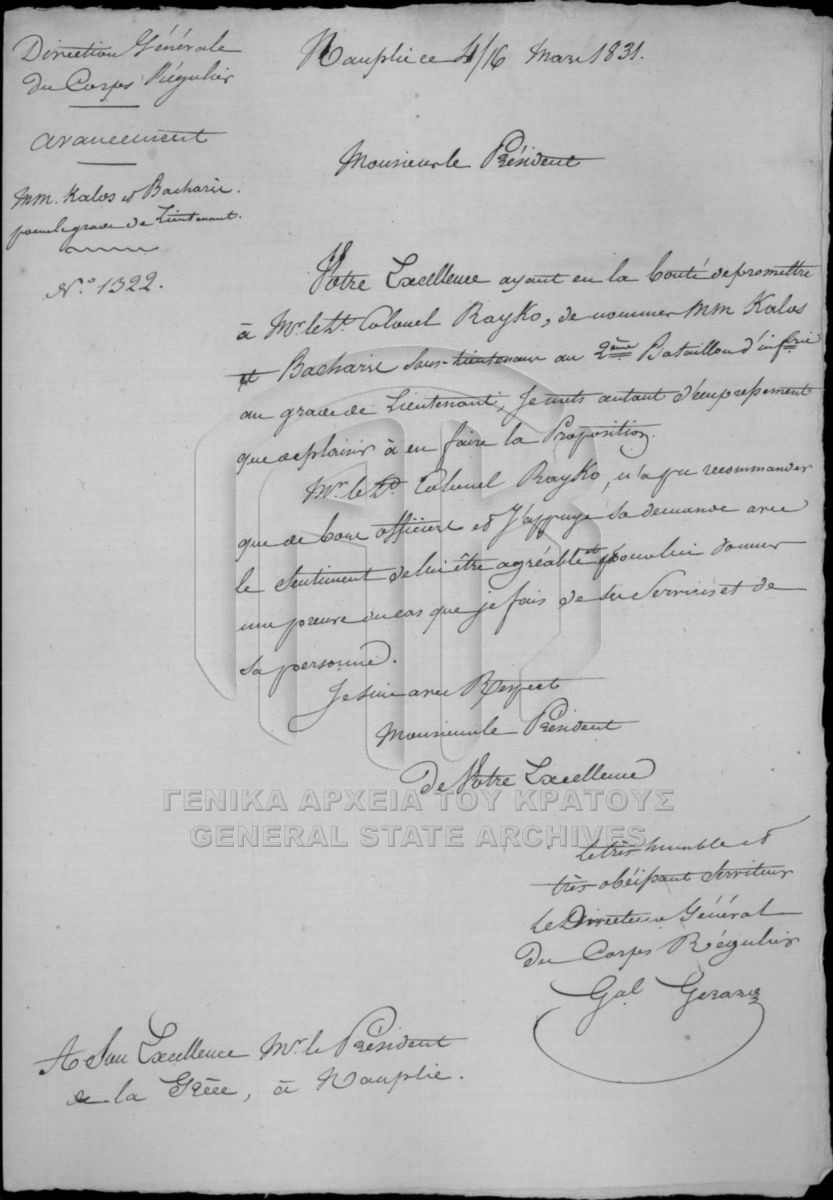 Direction Générale
Du Corps Régulier
avancement
MM. Kalos et Bacharie.
pour le grade de Lieutenant.
N.° 1322.
Nauplie ce 4/16 Mars 1831.
Monsieur le Président
Votre Excellence ayant eu la bonté de promettre
à Mr. le Lt. Colonel Rayko, de nommer MM Kalos
et Bacharie Sous-Lieutenans au 2ème Bataillon d'infrie
au grade de Lieutenant, Je mets autant d'empressement
que de plaisir à en faire la Proposition.
Mr. le Lt. Colonel Rayko, n'a pu recommander
que de bons officiers et J'appuye sa demande avec
le sentiment de lui être agréable et pour lui donner
une preuve du cas que je fais de ses Services et de
sa personne.
Je suis avec Respect
Monsieur le Président
De Votre Excellence
le très humble et
très obéissant Serviteur
Le Directeur Général
Du Corps Régulier
Gal Gerard
A Son Excellence Mr. le Président
de la Grèce, à Nauplie.
ΓΕΝΙΚΑ ΑΡΧΕΙΑ ΤΟΥ ΚΡΑΤΟΥΣ
GENERAL STATE ARCHIVES